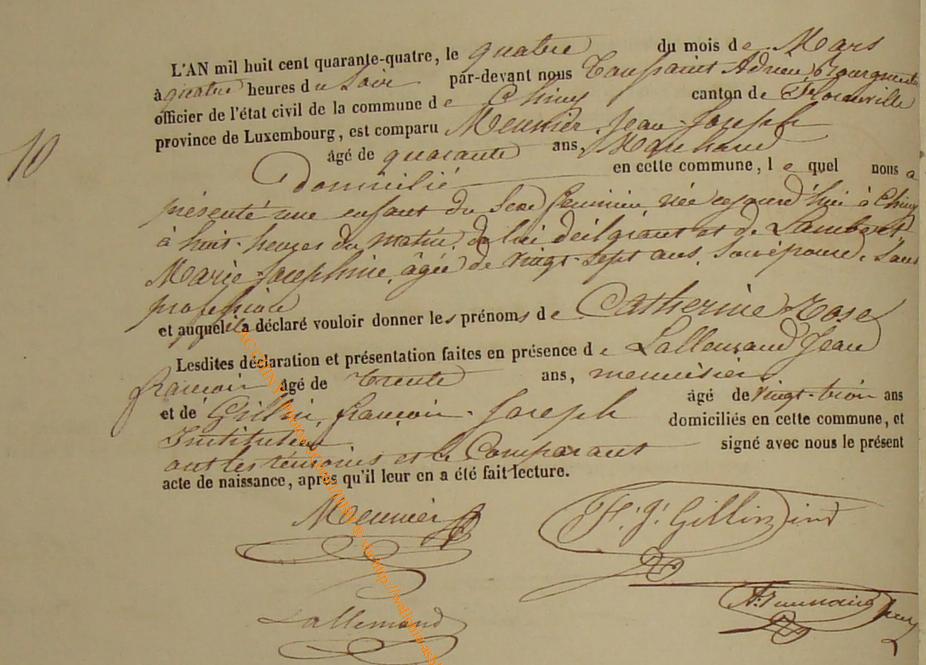 L'AN mil huit cent quarante-quatre, le quatre du mois de Mars
à quatre heures du Soir par-devant nous Toussaint Adrien
officier de l'état civil de la commune de Chiny canton de Florenville
province de Luxembourg, est comparu Meunier Jean-Joseph
10
âgé de quarante ans, Marchand
Domicilié en cette commune, lequel nous a
présenté une enfant du Sexe féminin née cejourd'hui à Chiny
à huit heures du matin, de lui déclarant et de Lambert,
Marie Josephine, âgée de vingt-sept ans, Son épouse, Sans
profession
et auquel il a déclaré vouloir donner les prénoms de Catherine Rose
Lesdites déclaration et présentation faites en présence de Lallemand Jean
françois âgé de Trente ans, menuisier
et de Gillin, françois-Joseph âgé de vingt-trois ans
Instituteur domiciliés en cette commune, et
ont les témoins et le Comparant signé avec nous le présent
acte de naissance, après qu'il leur en a été fait lecture.
Meunier
F. J. Gillin
Lallemand